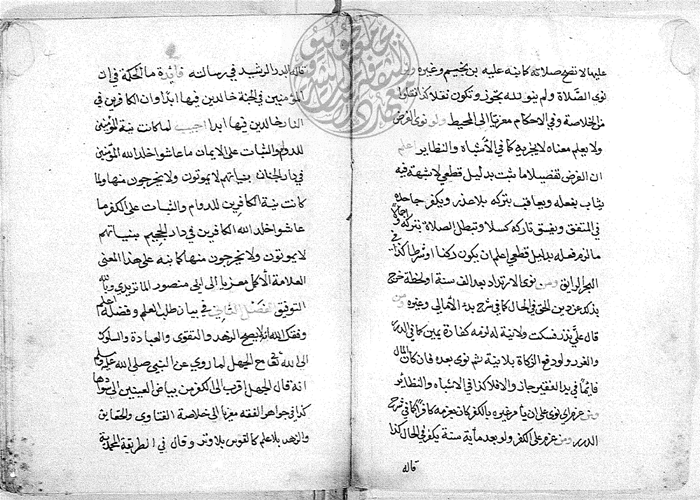 عليها لا تصح صلاته كما نبه عليه بن نجيم وغيره
نوى الصلاة ولم ينو لله يجوز وتكون نفلا كذا نقلوا
من الخلاصة وفي الاحكام معزيا الى المحيط ولو نوى الفرض
ولا يعلم معناه لا يجزيه كما في الأشباه والنظاير اعلم
ان الفرض تفصيلا ما ثبت بدليل قطعي لا شبهة فيه
يثاب بفعله ويعاقب بتركه بلا عذر ويكفر جاحده
في المتفق ويفسق تاركه كسلا وتبطل الصلاة بتركه
ما لزم فعله بدليل قطعي اعلم ان يكون ركنا او شرطا كذا في
البحر الرايق ومن نوى الارتداد بعد الف سنة او لحظة خرج
بذلك عن دين الحق في الحال كما في شرح بدء الأمالي وغيره ومن
قال علي نذر فسكت ولا نية له لزمه كفارة يمين كما في الدرر
والغرر ولو دفع الزكاة بلا نية ثم نوى بعده فان كان المال
قائما في يد الفقير جاز والا فلا كذا في الاشباه والنظائر
ومن عزم اي نوى على ان يأمر غيره بالكفر كان بعزمه كافرا كما في شرح
الدرر ومن عزم على الكفر ولو بعد مأية سنة يكفر في الحال كذا
قاله
قاله الدر الرشيد في رسالته فائدة ما الحكمة في ان
المؤمنين في الجنة خالدين فيها ابدا وان الكافرين في
النار خالدين فيها ابدا اجيب لما كانت نية المؤمنين
للدوام والثبات على الايمان ما عاشوا خلد الله المؤمنين
في دار الجنان بنياتهم لا يموتون ولا يخرجون منها ولما
كانت نية الكافرين للدوام والثبات على الكفر ما
عاشوا خلد الله الكافرين في دار الجحيم بنياتهم
لا يموتون ولا يخرجون منها كما نبه على هذا المعنى
العلامة الأكمل معزيا الى ابي منصور الماتريدي وبالله
التوفيق الفصل الثاني في بيان طلب العلم وفضله اعلم
وفقك الله انه لا يصح الزهد والتقوى والعبادة والسلوك
الى الله تعالى مع الجهل لما روي عن النبي صلى الله عليه وسلم
انه قال الجهل اقرب الى الكفر من بياض العينين الى سوادها
كذا في جواهر الفقه معزيا الى خلاصة الفتاوى والحقايق
والزهد بلا علم كالقوس بلا وتر وقال في الطريقة المحمدية